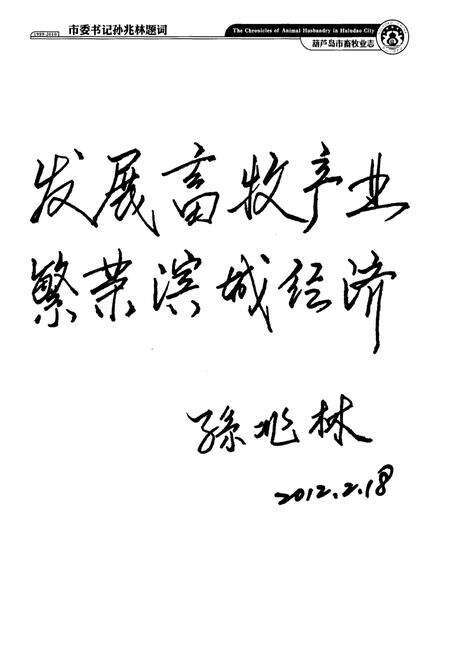 1989-2010
市委书记孙兆林题词
The Chronicles of Animal Husbandry in Huludao City
葫芦岛市畜牧业志
发展畜牧产业
繁荣滨城经济
孫兆林
2012.2.18